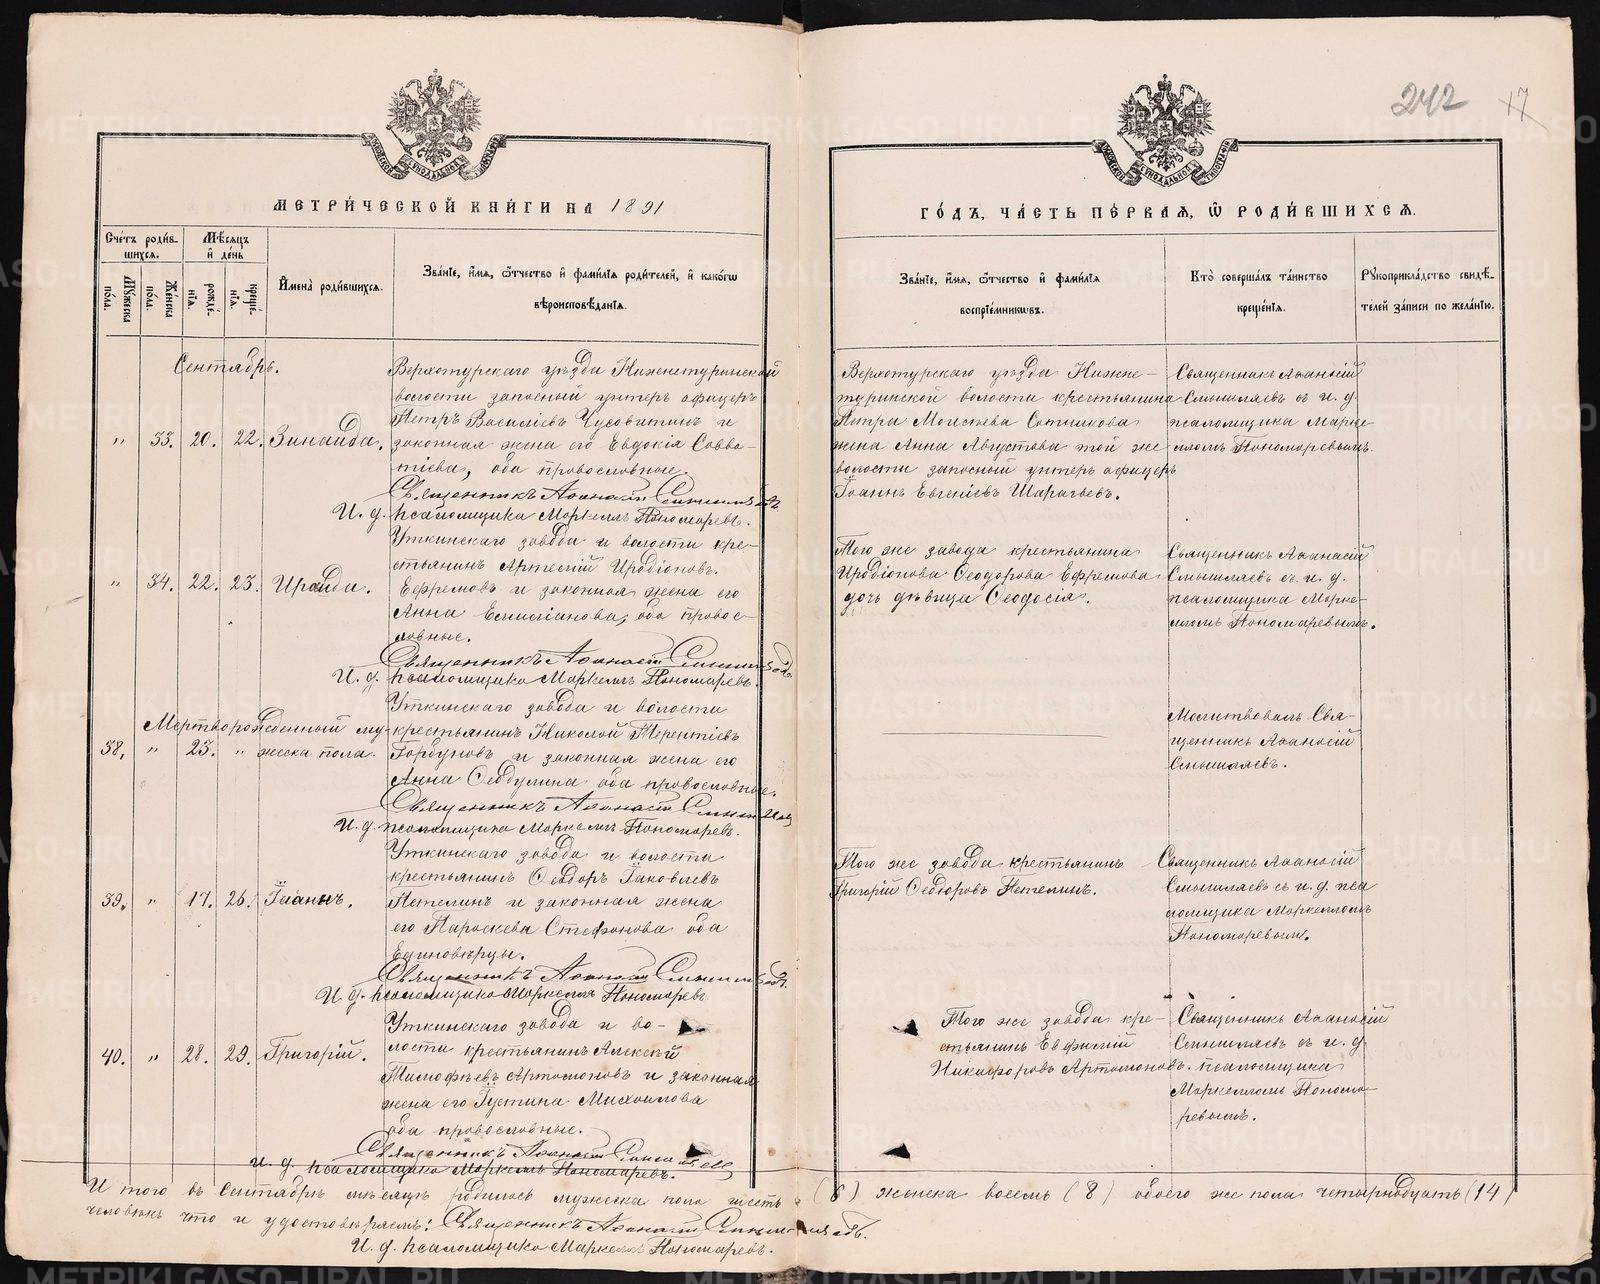 242 17
МЕТРИ́ЧЕСКОЙ КНИ́ГИ НА 1891
ГО́ДЪ, ЧА́СТЬ ПЕ́РВАѦ, Ѡ РОДИ́ВШИХСѦ.
Сче́тъ роди́в-
шихсѧ.
Мѣ́сѧцъ
и де́нь
Мꙋ́жеска по́ла.
Же́нска по́ла.
рожде́-нїѧ.
креще́-нїѧ.
Имена̀ роди́вшихсѧ.
Зва́нїе, и́мѧ, ѻ́тчество и фами́лїѧ роди́телей, и како́гѡ
вѣроисповѣ́данїѧ.
Зва́нїе, и́мѧ, ѻ́тчество и фами́лїѧ
воспрїе́мникѡвъ.
Кто̀ соверша́лъ та́инство
креще́нїѧ.
Рꙋкоприкла́дство свидѣ́-
телей за́писи по жела́нїю.
Сентябрь.
" 33. 20. 22. Зинаида.
Верхотурскаго уѣзда Нижнетуринской
волости запасный унтеръ офицеръ
Петръ Василіевъ Чусовитинъ и
законная жена его Евдокія Савва-
тіева, оба православные.
Священникъ Аѳанасій Смышляевъ
И. д. псаломщика Маркеллъ Пономаревъ.
Верхотурскаго уѣзда Нижне-
туринской волости крестьянина
Петра Моисеева Сотникова
жена Анна Августова той же
волости запасный унтеръ офицеръ
Іоаннъ Евгеніевъ Шарапьевъ.
Священникъ Аѳанасій
Смышляевъ съ и. д.
псаломщика Марке-
лломъ Пономаревымъ.
" 34. 22. 23. Ираида.
Уткинскаго завода и волости кре-
стьянинъ Артемій Иродіоновъ
Ефремовъ и законная жена его
Анна Емиліанова, оба правос-
лавные.
Священникъ Аѳанасій Смышляевъ
И. д. псаломщика Маркеллъ Пономаревъ.
Того же завода крестьянина
Иродіона Ѳеодорова Ефремова
дочь дѣвица Ѳеодосія.
Священникъ Аѳанасій
Смышляевъ съ и. д.
псаломщика Марке-
лломъ Пономаревымъ.
38. " 23. " Мертворожденный му-
жеска пола.
Уткинскаго завода и волости
крестьянинъ Николай Терентіевъ
Горбуновъ и законная жена его
Анна Ѳеодулина оба православные.
Священникъ Аѳанасій Смышляевъ
И. д. псаломщика Маркеллъ Пономаревъ.
Молитвовалъ Свя-
щенникъ Аѳанасій
Смышляевъ.
39. " 17. 26. Іоаннъ.
Уткинскаго завода и волости
крестьянинъ Ѳеодоръ Іаковлевъ
Петелинъ и законная жена
его Параскева Стефанова оба
Единовѣрцы.
Священникъ Аѳанасій Смышляевъ
И. д. псаломщика Маркеллъ Пономаревъ
Того же завода крестьянинъ
Григорій Ѳеодоровъ Петелинъ.
Священникъ Аѳанасій
Смышляевъ съ и. д. пса
ломщика Маркелломъ
Пономаревымъ.
40. " 28. 29. Григорій.
Уткинскаго завода и во-
лости крестьянинъ Алексѣй
Тимофѣевъ Артамоновъ и законная
жена его Іустина Михаилова
оба православные.
Священникъ Аѳанасій Смышляевъ
И. д. псаломщика Маркеллъ Пономаревъ.
Того же завода кре-
стьянинъ Евфимій
Никифоровъ Артамоновъ.
Священникъ Аѳанасій
Смышляевъ съ и. д.
псаломщика
Маркелломъ Понома-
ревымъ.
И того въ Сентябрѣ мѣсяцѣ родилось мужеска пола шесть (6) женска восемь (8) обоего же пола четырнадцать (14)
человѣкъ что и удостовѣряемъ: Священникъ Аѳанасій Смышляевъ.
И. д. псаломщика Маркеллъ Пономаревъ.
METRIKI.GASO-URAL.RU